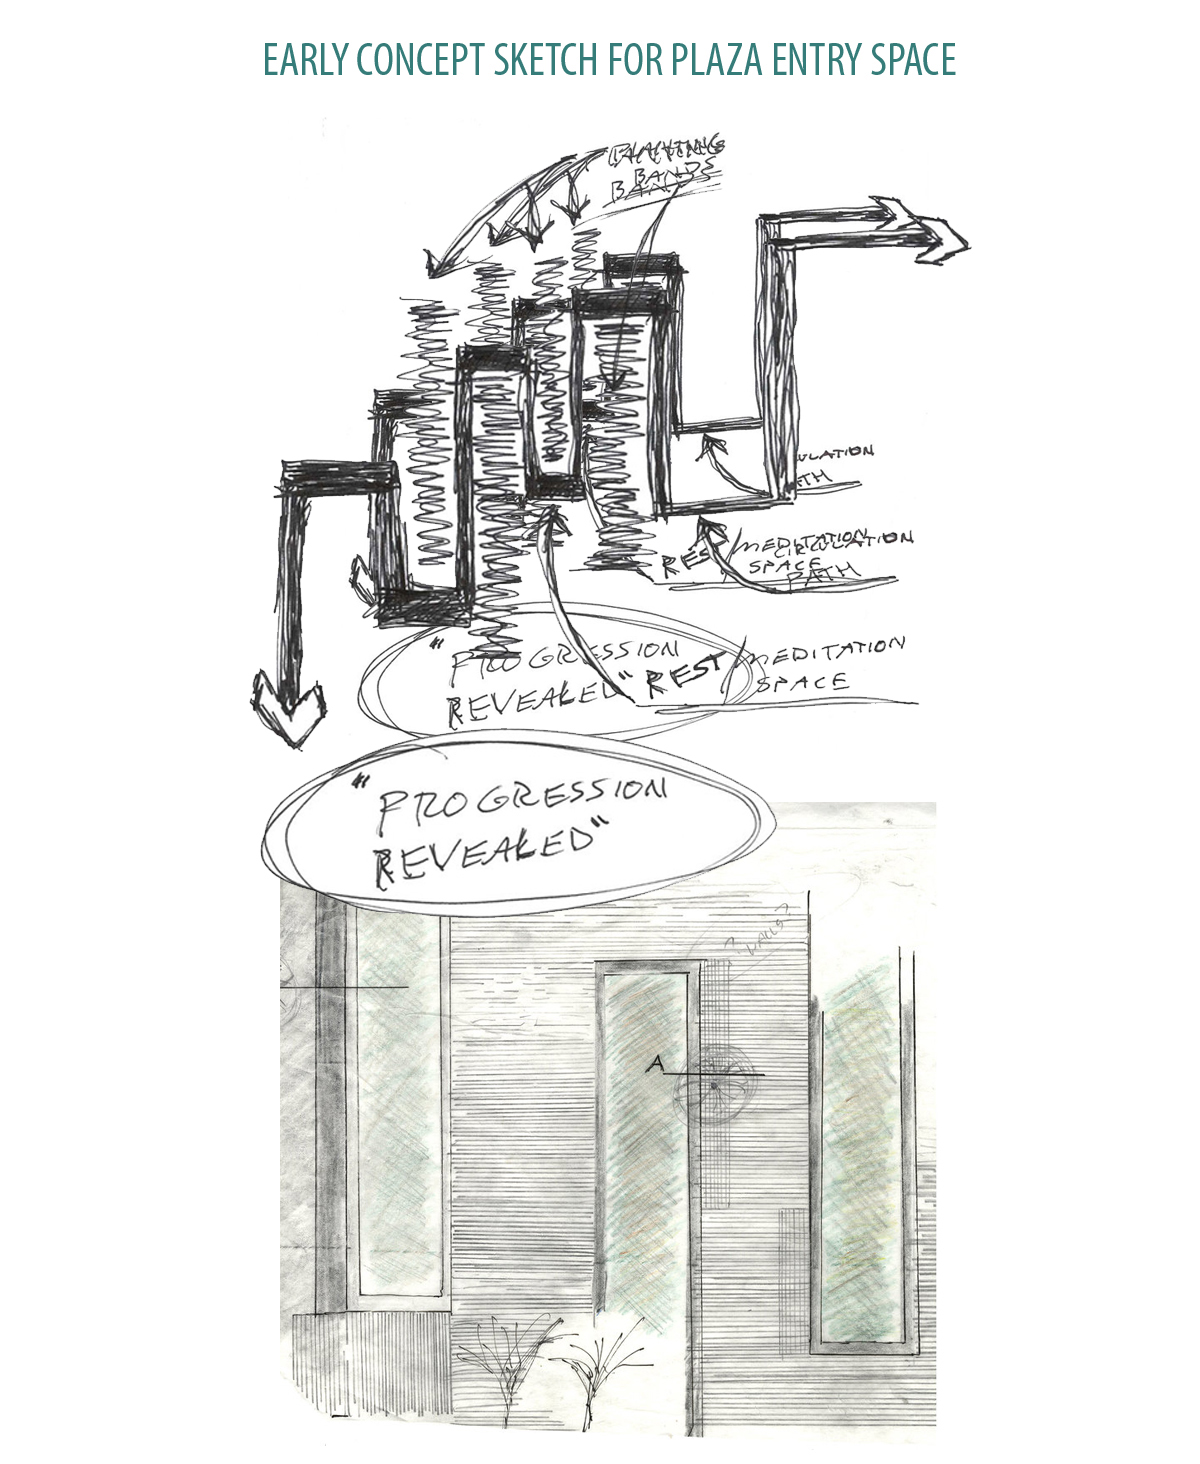 EARLY CONCEPT SKETCH FOR PLAZA ENTRY SPACE
PLANTING
BANDS
BANDS
ULATION
ATH
REST/MEDITATION
SPACE
CIRCULATION
PATH
"PROGRESSION
REVEALED"
REST/MEDITATION
SPACE
"PROGRESSION
REVEALED"
? WALLS?
A